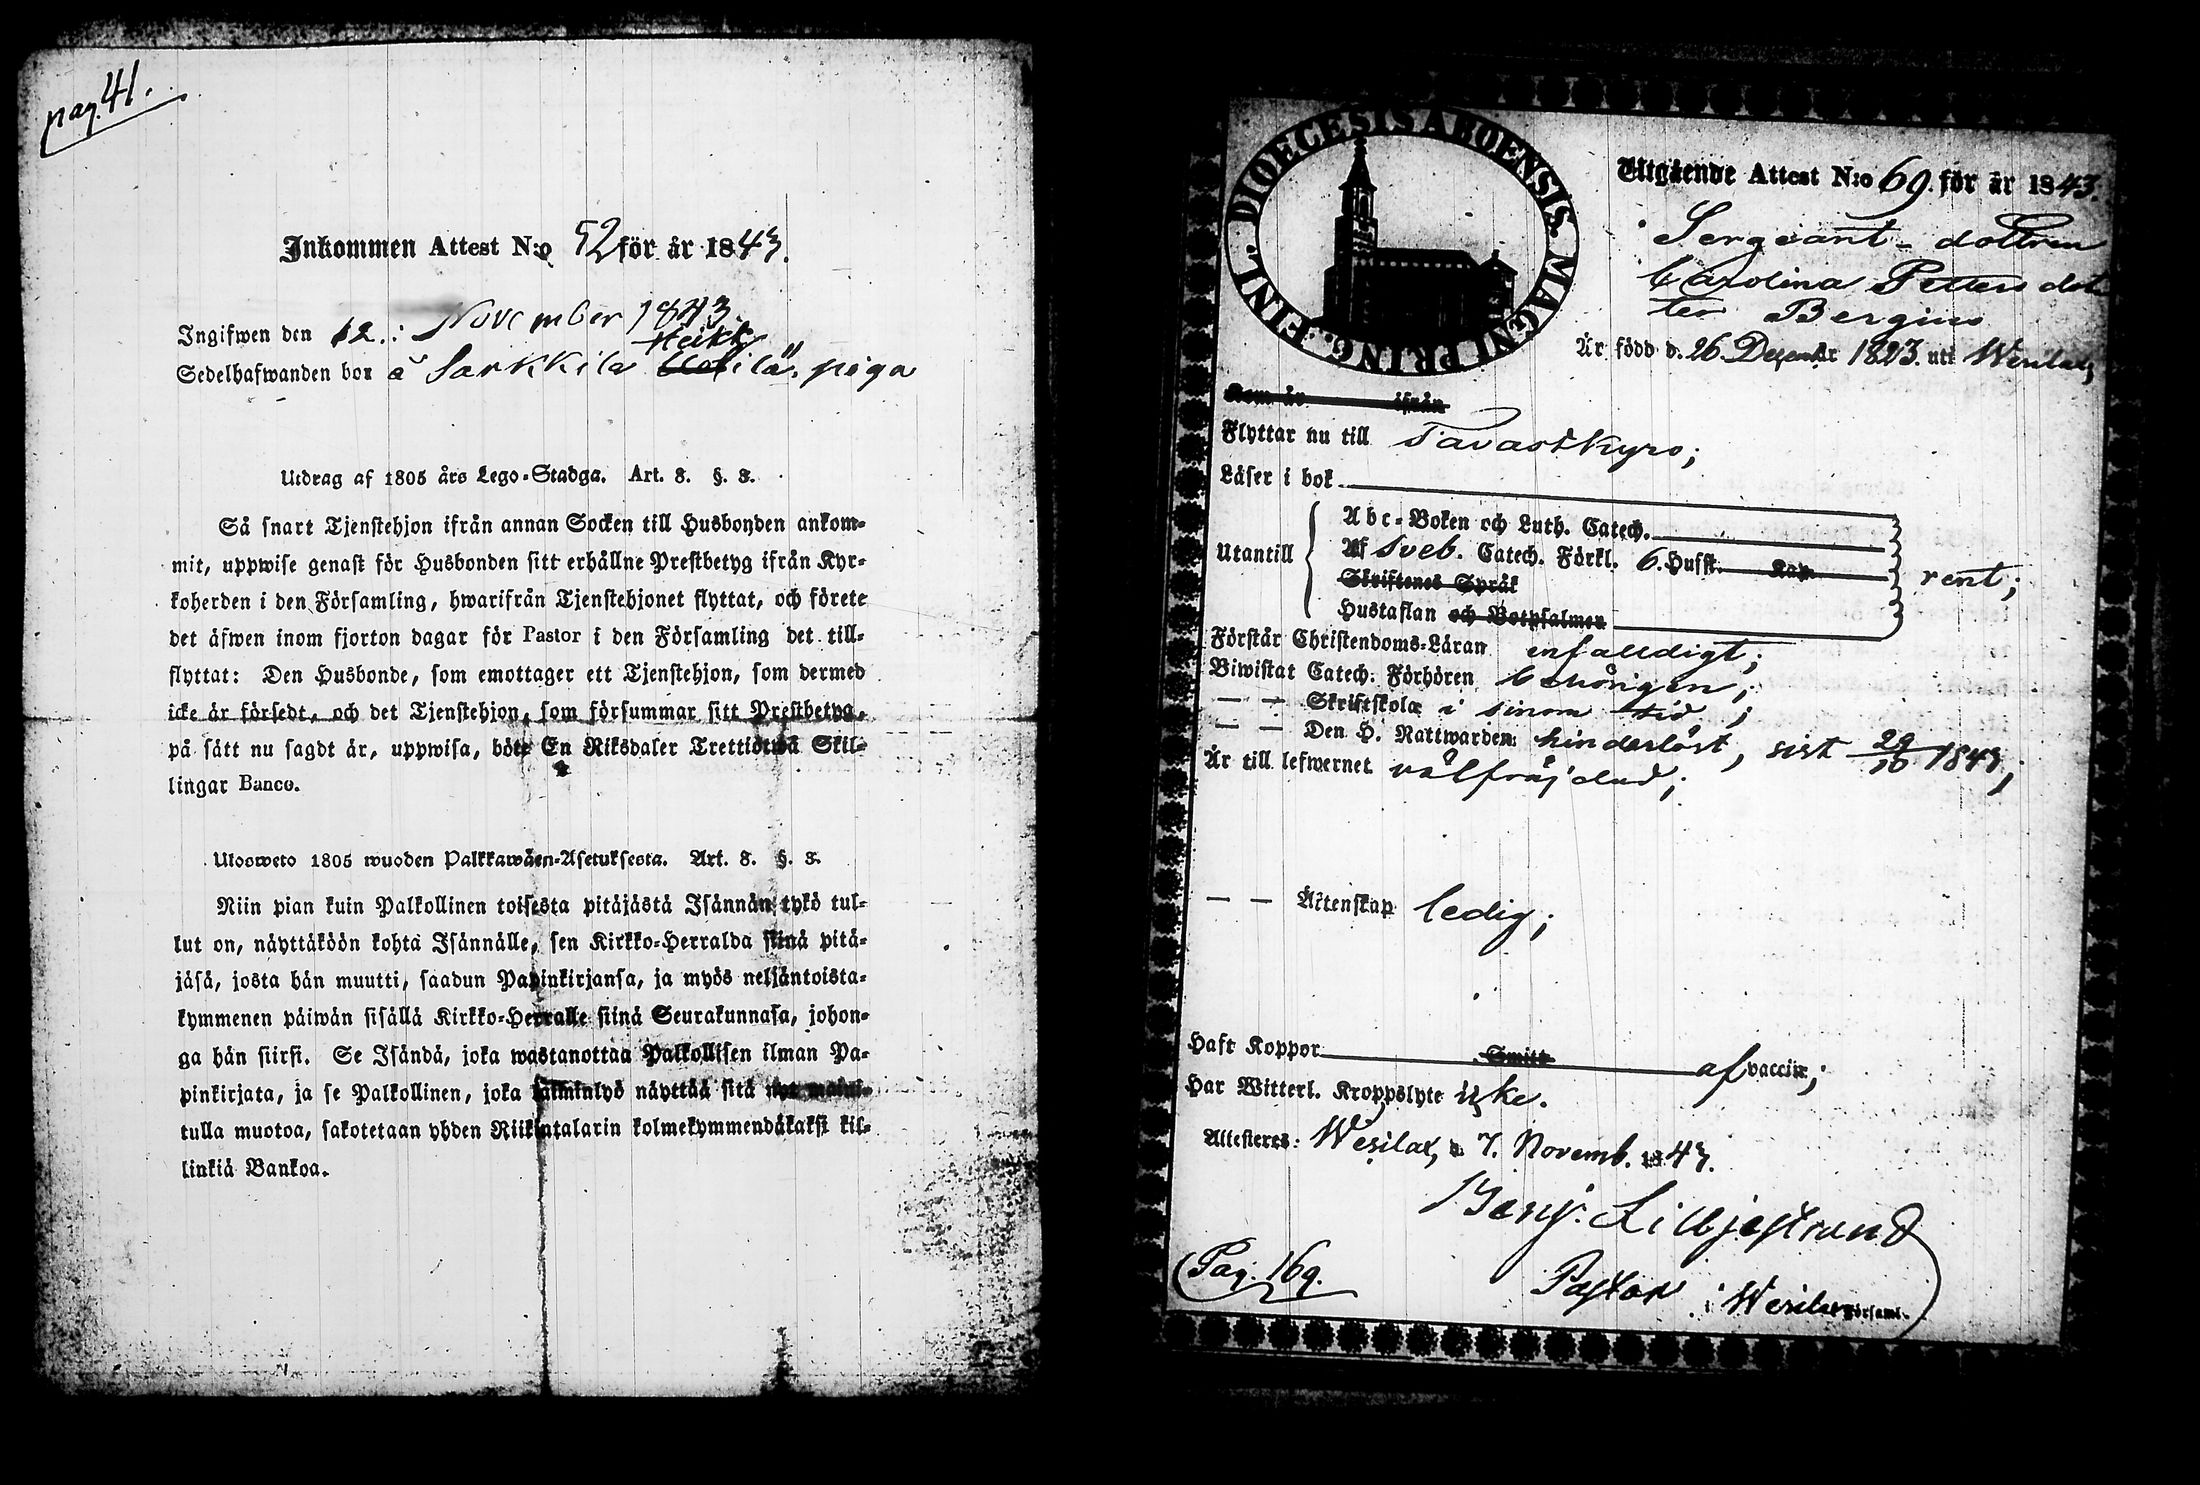 pag. 41.
Inkommen Attest N:o 52 för år 1843.
Ingifwen den 12.: November 1843.
Heikk
Sedelhafwanden bor å Sarkkila ilä. piga
Utdrag af 1805 års Lego-Stadga. Art. 3. §. 3.
Så snart Tjenstehjon ifrån annan Socken till Husbonden ankom-
mit, uppwise genast för Husbonden sitt erhållne Prestbetyg ifrån Kyr-
koherden i den Församling, hwarifrån Tjenstehjonet flyttat, och förete
det äfwen inom fjorton dagar för Pastor i den Församling det till-
flyttat: Den Husbonde, som emottager ett Tjenstehjon, som dermed
icke är försedt, och det Tjenstehjon, som försummar sitt Prestbetyg,
på sätt nu sagdt är, uppwisa, böte En Riksdaler Trettiotwå Skil-
lingar Banco.
Ulosweto 1805 wuoden Palkkawäen-Asetuksesta. Art. 3. §. 3.
Niin pian kuin Palkollinen toisesta pitäjästä Isännän tykö tul-
lut on, näyttäköön kohta Isännälle, sen Kirkko-Herralda siinä pitä-
jäsä, josta hän muutti, saadun Papinkirjansa, ja myös neljäntoista-
kymmenen päiwän sisällä Kirkko-Herralle siinä Seurakunnasa, johon-
ga hän siirsi. Se Isändä, joka wastanottaa Palkollisen ilman Pa-
pinkirjata, ja se Palkollinen, joka laiminlyö näyttää sitä nyt maini-
tulla muotoa, sakotetaan yhden Riikintalarin kolmekymmendäkaksi kil-
linkiä Bankoa.
DIOECESIS ABOENSIS. MAGNI PRING. FINL.
Utgående Attest N:o 69 för år 1843.
Sergeant-dottren
Carolina Petters dot
ter Bergius
Är född d. 26. Decembr 1823. uti Wesilax,
Kom år ifrån
Flyttar nu till Tavastkyro;
Läser i bok
Abc-Boken och Luth. Catech.
Utantill Af Sveb. Catech. Förkl. 6. Husst. Kap. rent;
Skriftenes Språk
Hustaflan och Botpsalmen
Förstår Christendoms-Läran enfalldigt;
Biwistat Catech. Förhören behörigen;
— — Skriftskola i sinom tid;
— — Den H. Nattwarden hinderlöst, sist 29/10 1843;
Är till lefwernet välfräjdad;
— — Äktenskap ledig;
Haft Koppor Smitt af vaccin;
Har Witterl. Kroppslyte icke.
Attesteres: Wesilax, d. 7. Novemb. 1843.
Benj. Lilljestrand
Pag. 169.
Pastor i Wesilax Församl.